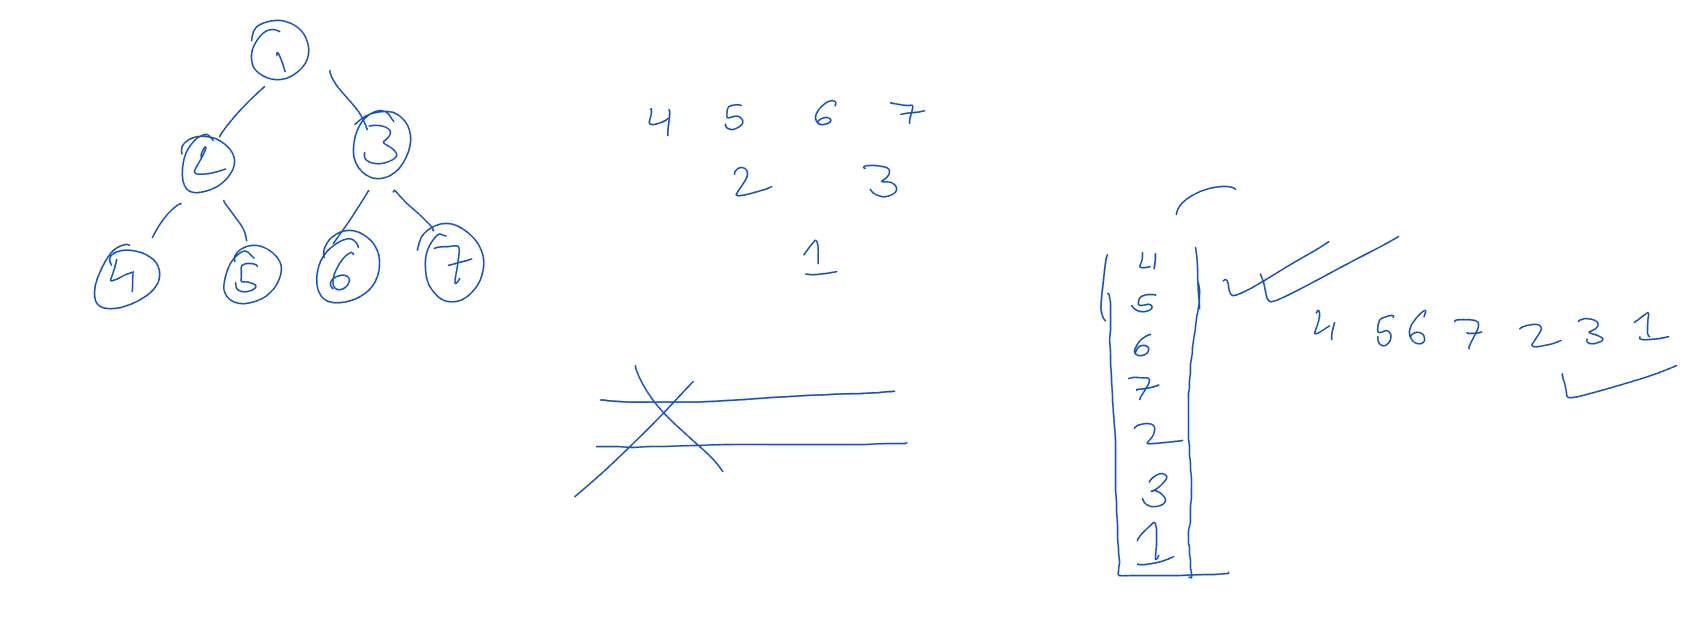 1
2 3
4 5 6 7
4 5 6 7
2 3
1
4
5
6
7
2
3
1
4 5 6 7 2 3 1